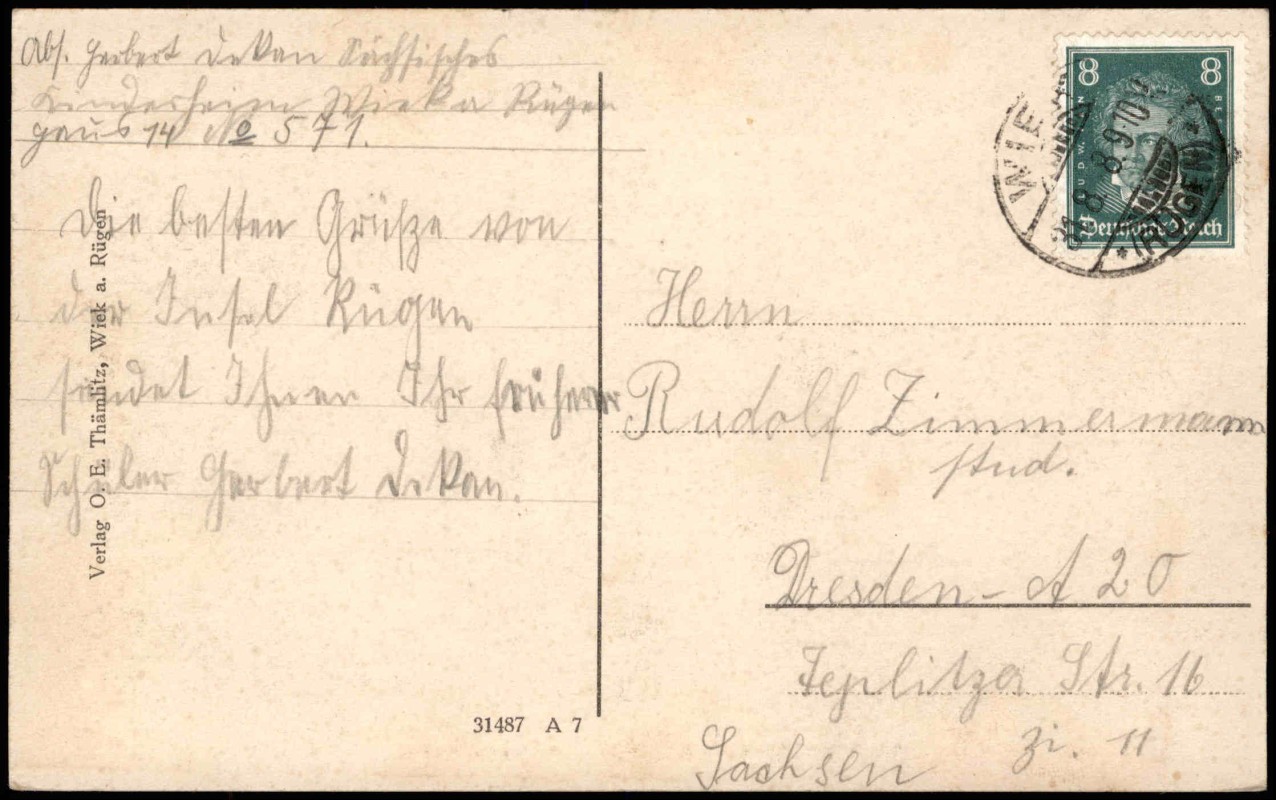 Abs. Herbert Dekan Sächsisches
Kinderheim Wiek a Rügen
Haus 14 No 571.
Die besten Grüße von
der Insel Rügen
sendet Ihnen Ihr früherer
Schüler Herbert Dekan.
Verlag O. E. Thämlitz, Wiek a. Rügen
31487 A 7
8 8
Deutsches Reich
WIEK
8.9-10
* (RÜGEN) *
Herrn
Rudolf Zimmermann
stud.
Dresden - A 20
Teplitzer Str. 16
Zi. 11
Sachsen